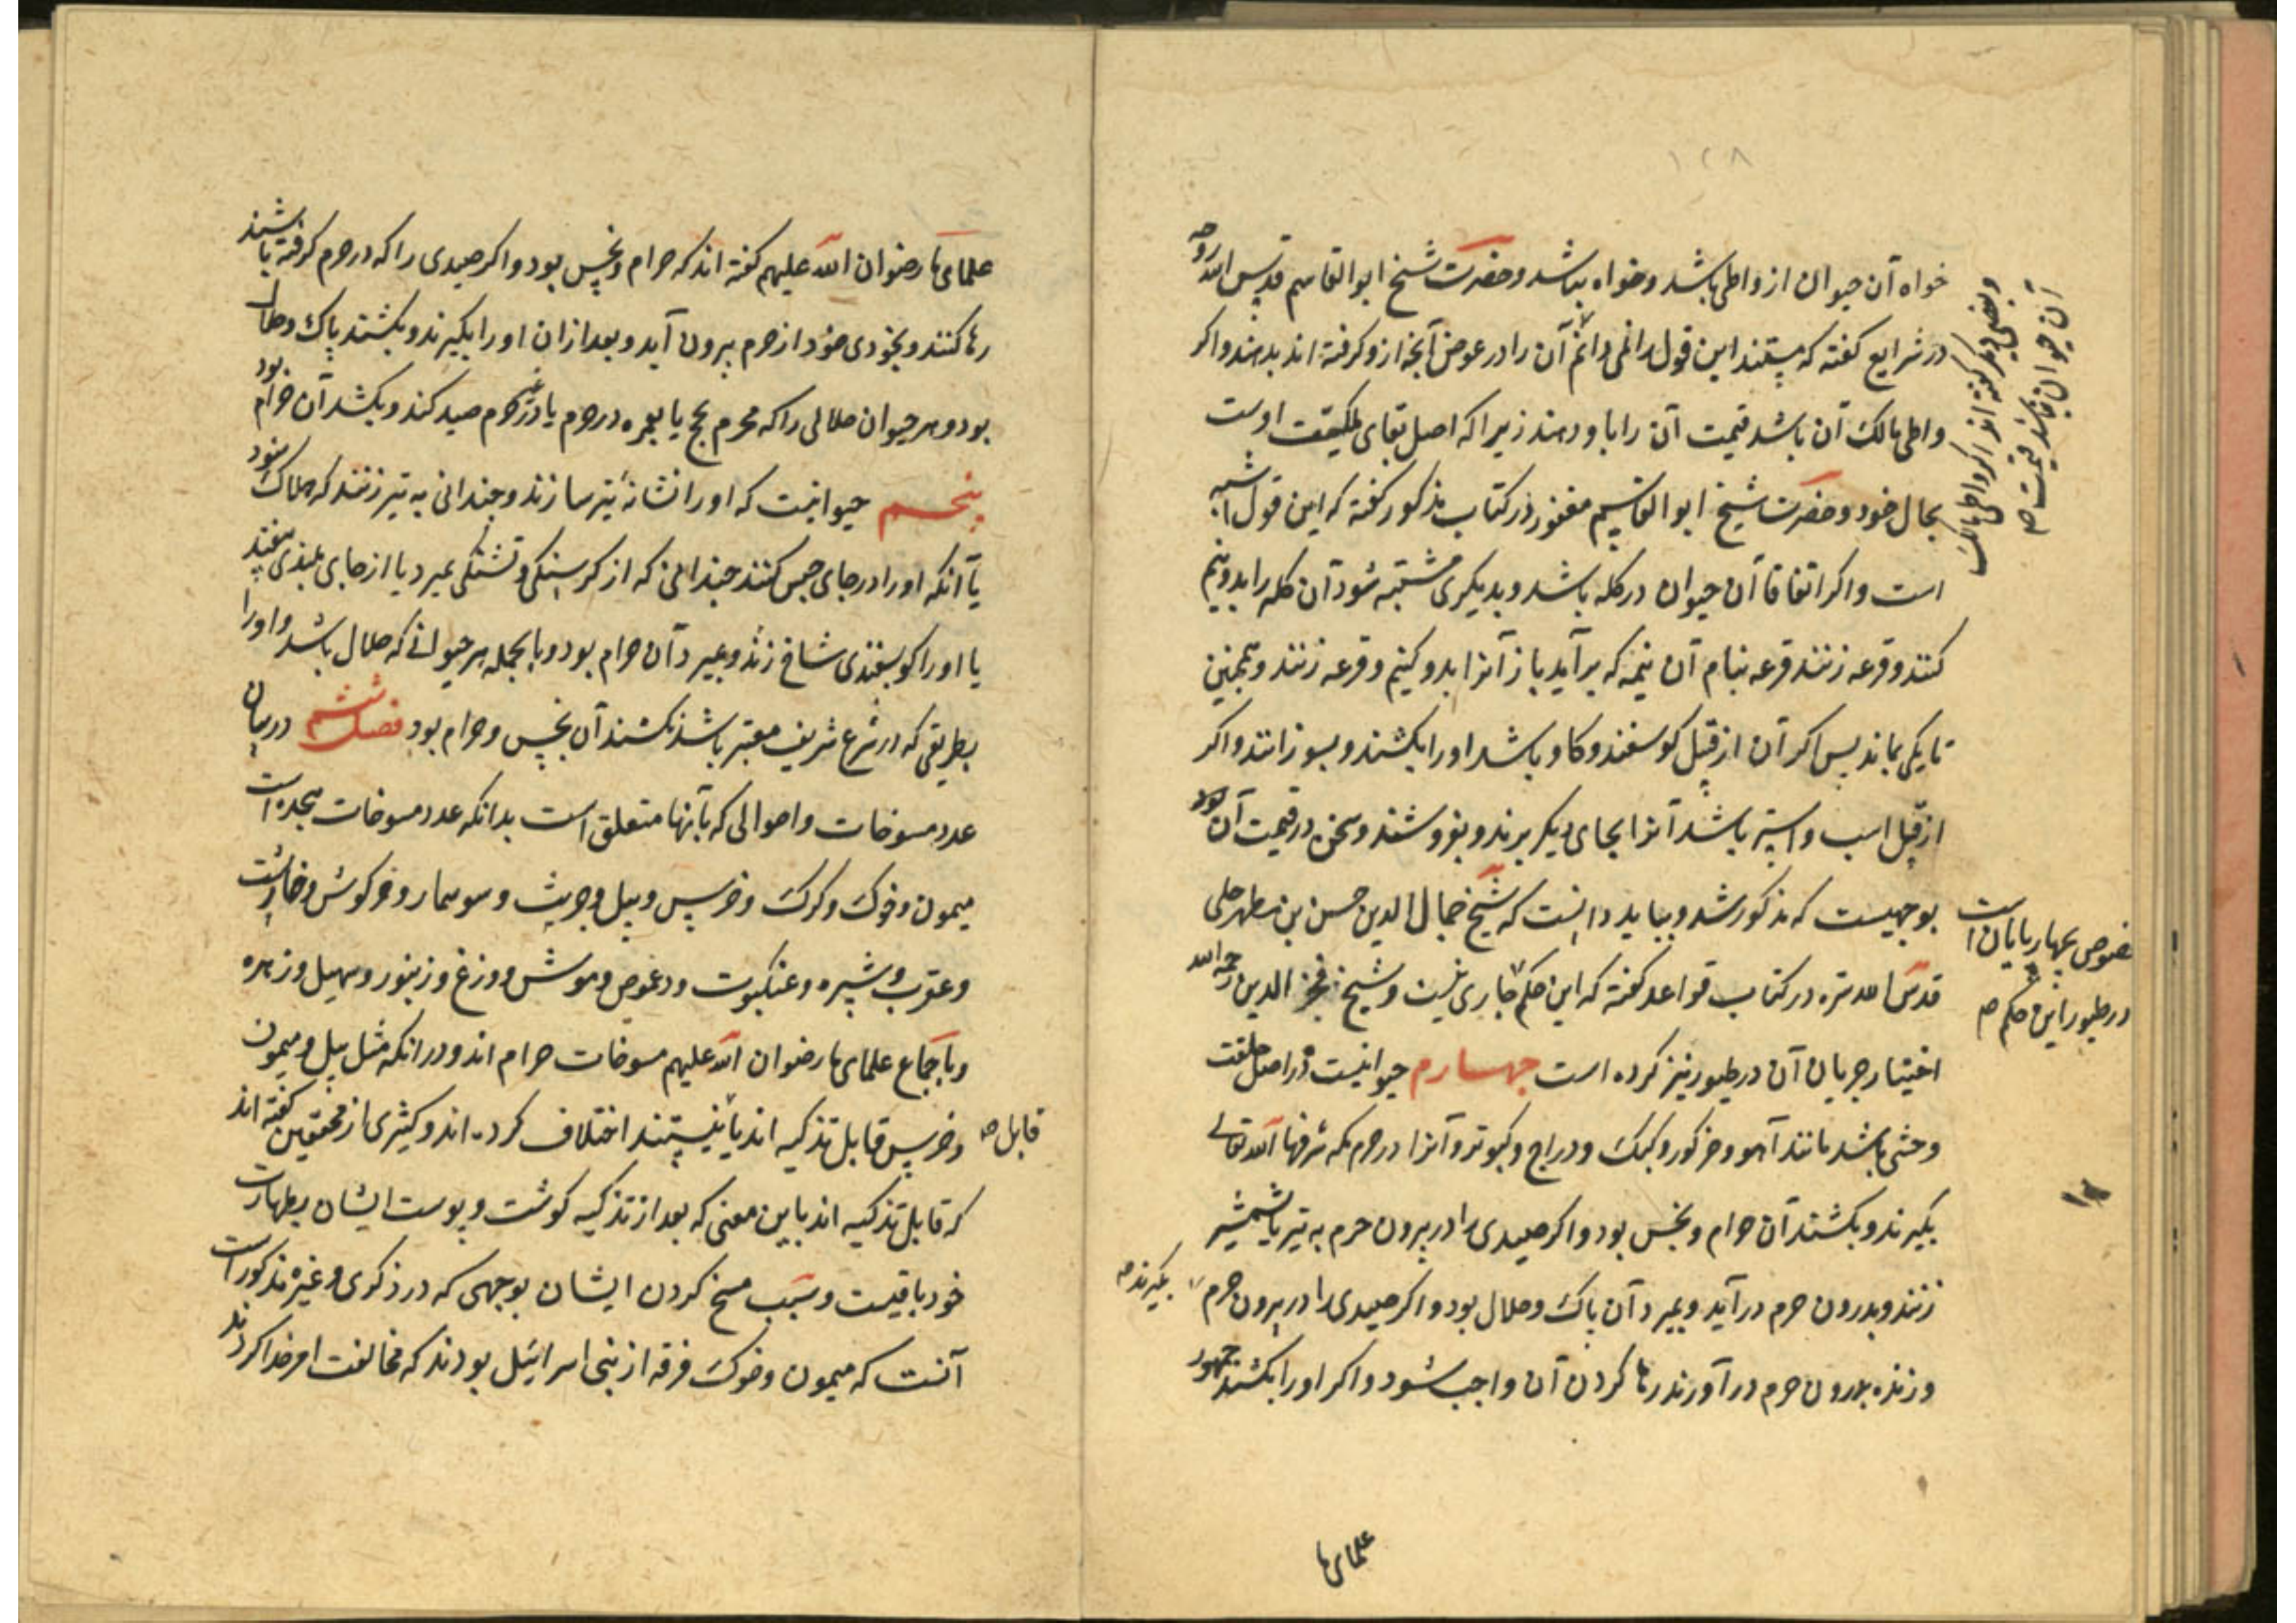 ۱۲۸
خواه آن حیوان از واطی باشد و خواه نباشد و حضرت شیخ ابو القاسم قدس الله روحه
در شرایع کفته که مستند این قول را نمی دانم آن را در عوض آنچه ازو کرفته اند بدهند واکر
واطی مالک آن باشد قیمت آن را باو دهند زیرا که اصل بقای ملکیت اوست
بحال خود و حضرت شیخ ابو القاسم مغفور در کتاب مذکور کفته که این قول اشبه
است واکر اتفاقا آن حیوان در کله باشد و بدیکری مشتبه شود آن کله را بدو نیم
کنند و قرعه زنند قرعه بنام آن نیمه که برآید باز آنرا بدو کنیم و قرعه زنند و همچنین
تا یکی بماند پس اکر آن از قبل کوسفند و کاو باشد او را بکشند و بسوزانند واکر
از قبل اسب و استر باشد آنرا بجای دیکر برند و بفروشند و سخن در قیمت آن بود
بوجهیست که مذکور شد و بباید دانست که شیخ جمال الدین حسن بن مطهر حلی
قدس الله سره در کتاب قواعد کفته که این حکم جاری نیست و شیخ فخر الدین رحمه الله
اختیار جریان آن در طیور نیز کرده است چهارم حیوانیست که در اصل خلقت
وحشی باشد مانند آهو و خر کور و کبک و دراج و کبوتر و آنرا در حرم مکه شرفها الله تعالی
بکیرند و بکشند آن حرام و نجس بود واکر صیدی را در بیرون حرم به تیر یا شمشیر
زنند و بدرون حرم درآید و بمیرد آن پاک و حلال بود واکر صیدی را در بیرون حرم
بکیرند صح
و زنده بدرون حرم درآورند رها کردن آن واجب شود واکر او را بکشند جمهور
علمای ما
و بعضی دیکر کفته اند اکر واطی مالک
آن حیوان باشد قیمت صح
مخصوص بچهارپایان است
در طیور این حکم صح
علمای ما رضوان الله علیهم کفته اند که حرام و نجس بود واکر صیدی را که در حرم کرفته باشند
رها کنند و بخودی خود از حرم بیرون آید و بعد ازان او را بکیرند و بکشند پاک و حلال
بود و هر حیوان حلالی را که محرم بحج یا بعمره در حرم یا در غیر حرم صید کند و بکشد آن حرام بود
پنجم حیوانیست که او را نشانهٔ تیر سازند و چندانی به تیر زنند که هلاک شود
یا آنکه او را در جای حبس کنند چندانی که از کرسنکی و تشنکی بمیرد یا از جای بلندی بیفتد
یا او را کوسفندی شاخ زند و بمیرد آن حرام بود و بالجمله هر حیوانی که حلال باشد و او را
بطریقی که در شرع شریف معتبر باشد نکشند آن نجس و حرام بود فصل ششم در بیان
عدد مسوخات و احوالی که بآنها متعلق است بدانکه عدد مسوخات هیجده است
میمون و خوک و کرک و خرس و پیل و جریث و سوسمار و خرکوش و خارپشت
و عقرب و شپره و عنکبوت و دعموص و موش و وزغ و زنبور و سهیل و زهره
و باجماع علمای ما رضوان الله علیهم مسوخات حرام اند و در انکه مثل پیل و میمون
و خرس قابل تذکیه اند یا نیستند اختلاف کرده اند و کثیری از محققین کفته اند
قابل صح
که قابل تذکیه اند باین معنی که بعد از تذکیه کوشت و پوست ایشان بطهارت
خود باقیست و سبب مسخ کردن ایشان بوجهی که در ذکری و غیره مذکور است
آنست که میمون و خوک فرقه از بنی اسرائیل بودند که مخالفت امر خدا کردند